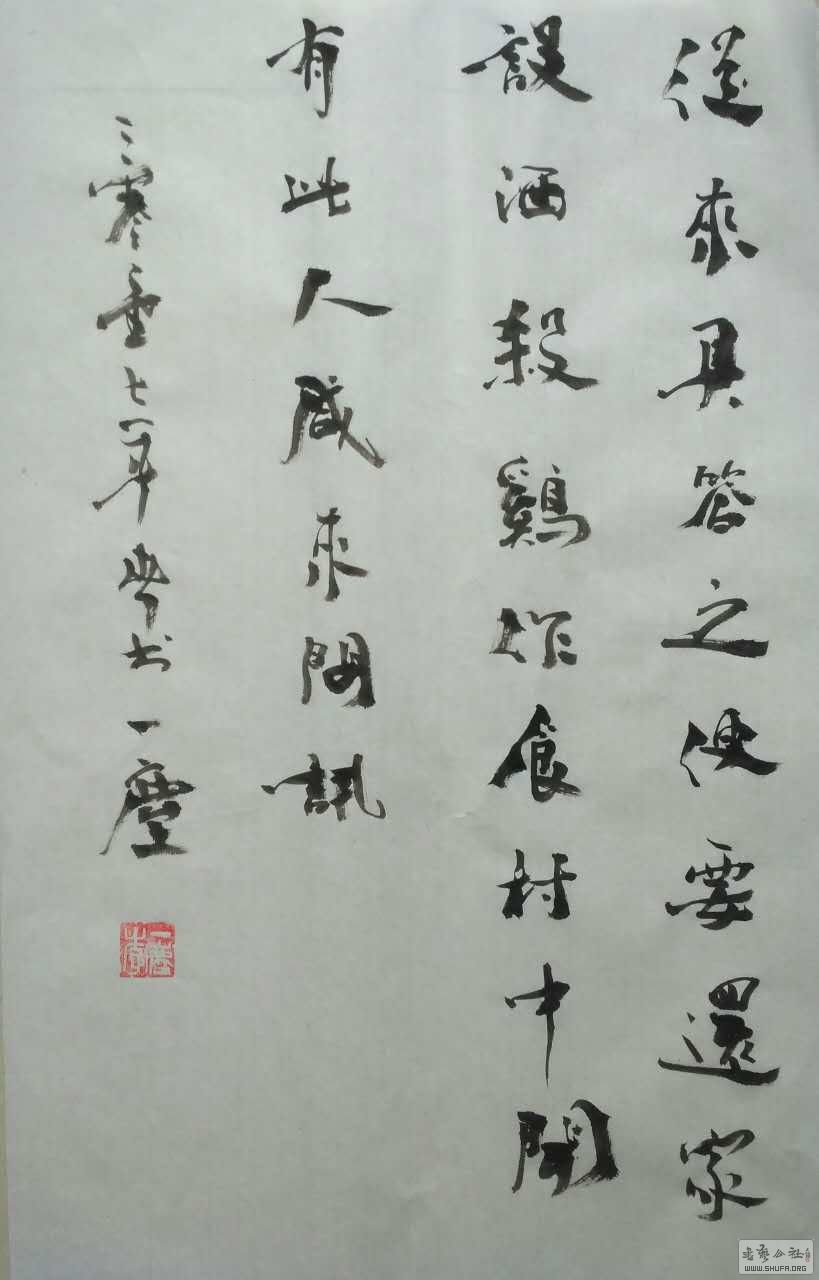 從來具答之便要還家
設酒殺鷄作食村中聞
有此人咸來問訊
二零壹七年 书一塵
书艺公社
WWW.SHUFA.ORG